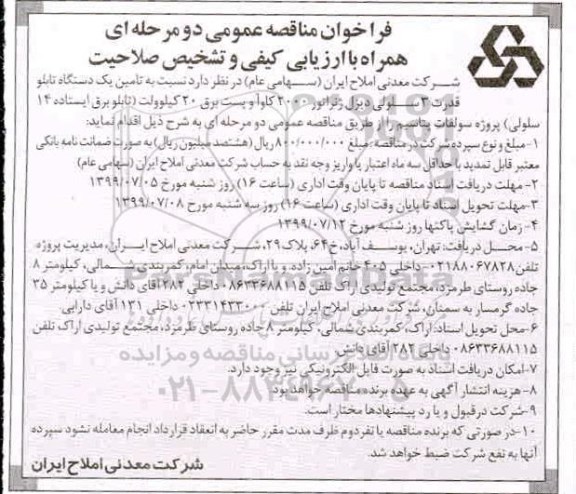 فراخوان مناقصه عمومی دو مرحله ای
همراه با ارزیابی کیفی و تشخیص صلاحیت
شرکت معدنی املاح ایران (سهامی عام) در نظر دارد نسبت به تامین یک دستگاه تابلو
قدرت سلولی دیزل ژنراتور ۲۰۰۰ کاوآ و پست برق ۲۰ کیلوولت (تابلو برق ایستاده ۱۴
سلولی) پروژه سولفات پتاسیم را از طریق مناقصه عمومی دو مرحله ای به شرح ذیل اقدام نماید:
۱- مبلغ و نوع سپرده شرکت در مناقصه: مبلغ ۸۰۰/۰۰۰/۰۰۰ ریال (هشتصد میلیون ریال) به صورت ضمانت نامه بانکی
معتبر قابل تمدید با حداقل سه ماه اعتبار یا واریز وجه نقد به حساب شرکت معدنی املاح ایران (سهامی عام)
۲- مهلت دریافت اسناد مناقصه تا پایان وقت اداری (ساعت ۱۶) روز شنبه مورخ ۱۳۹۹/۰۷/۰۵
۳- مهلت تحویل اسناد تا پایان وقت اداری (ساعت ۱۶) روز سه شنبه مورخ ۱۳۹۹/۰۷/۰۸
۴- زمان گشایش پاکتها روز شنبه مورخ ۱۳۹۹/۰۷/۱۲
۵- محل دریافت: تهران، یوسف آباد، خ ۶۴، پلاک ۲۹، شرکت معدنی املاح ایران، مدیریت پروژه
تلفن ۰۲۱۸۸۰۶۷۸۲۸ داخلی ۴۰۵ خانم امین زاده. و یا اراک، میدان امام، کمربندی شمالی، کیلومتر ۸
جاده روستای طرمزد، مجتمع تولیدی اراک تلفن ۰۸۶۳۳۶۸۸۱۱۵ داخلی ۲۸۲ آقای دانش و یا کیلومتر ۳۵
جاده گرمسار به سمنان، شرکت معدنی املاح ایران تلفن ۰۲۳۳۱۴۳۳۰۰۰ داخلی ۱۳۱ آقای دارابی.
۶- محل تحویل اسناد: اراک، کمربندی شمالی، کیلومتر ۸ جاده روستای طرمزد، مجتمع تولیدی اراک تلفن
۰۸۶۳۳۶۸۸۱۱۵ داخلی ۲۸۲ آقای دانش
۷- امکان دریافت اسناد به صورت فایل الکترونیکی نیز وجود دارد.
۸- هزینه انتشار آگهی به عهده برنده مناقصه خواهد بود
۹- شرکت در قبول و یا رد پیشنهادها مختار است.
۱۰- در صورتی که برنده مناقصه یا نفر دوم ظرف مدت مقرر حاضر به انعقاد قرارداد انجام معامله نشود سپرده
آنها به نفع شرکت ضبط خواهد شد.
شرکت معدنی املاح ایران
پایگاه اطلاع رسانی مناقصه و مزایده
۰۲۱-۸۸۳۴۹۶۷۰-۵